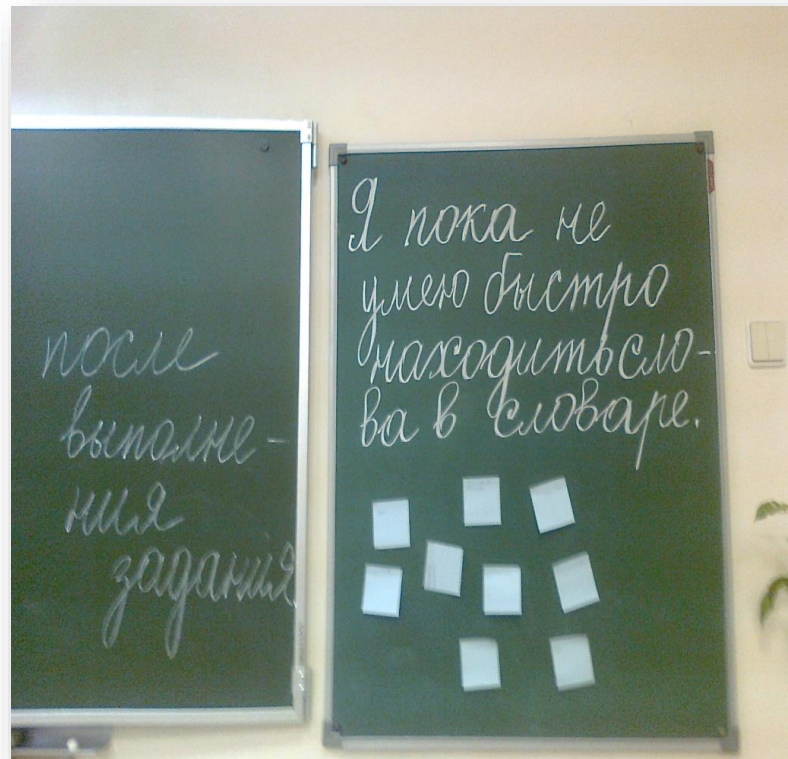 после
выполне-
ния
задания
Я пока не
умею быстро
находить сло-
ва в словаре.